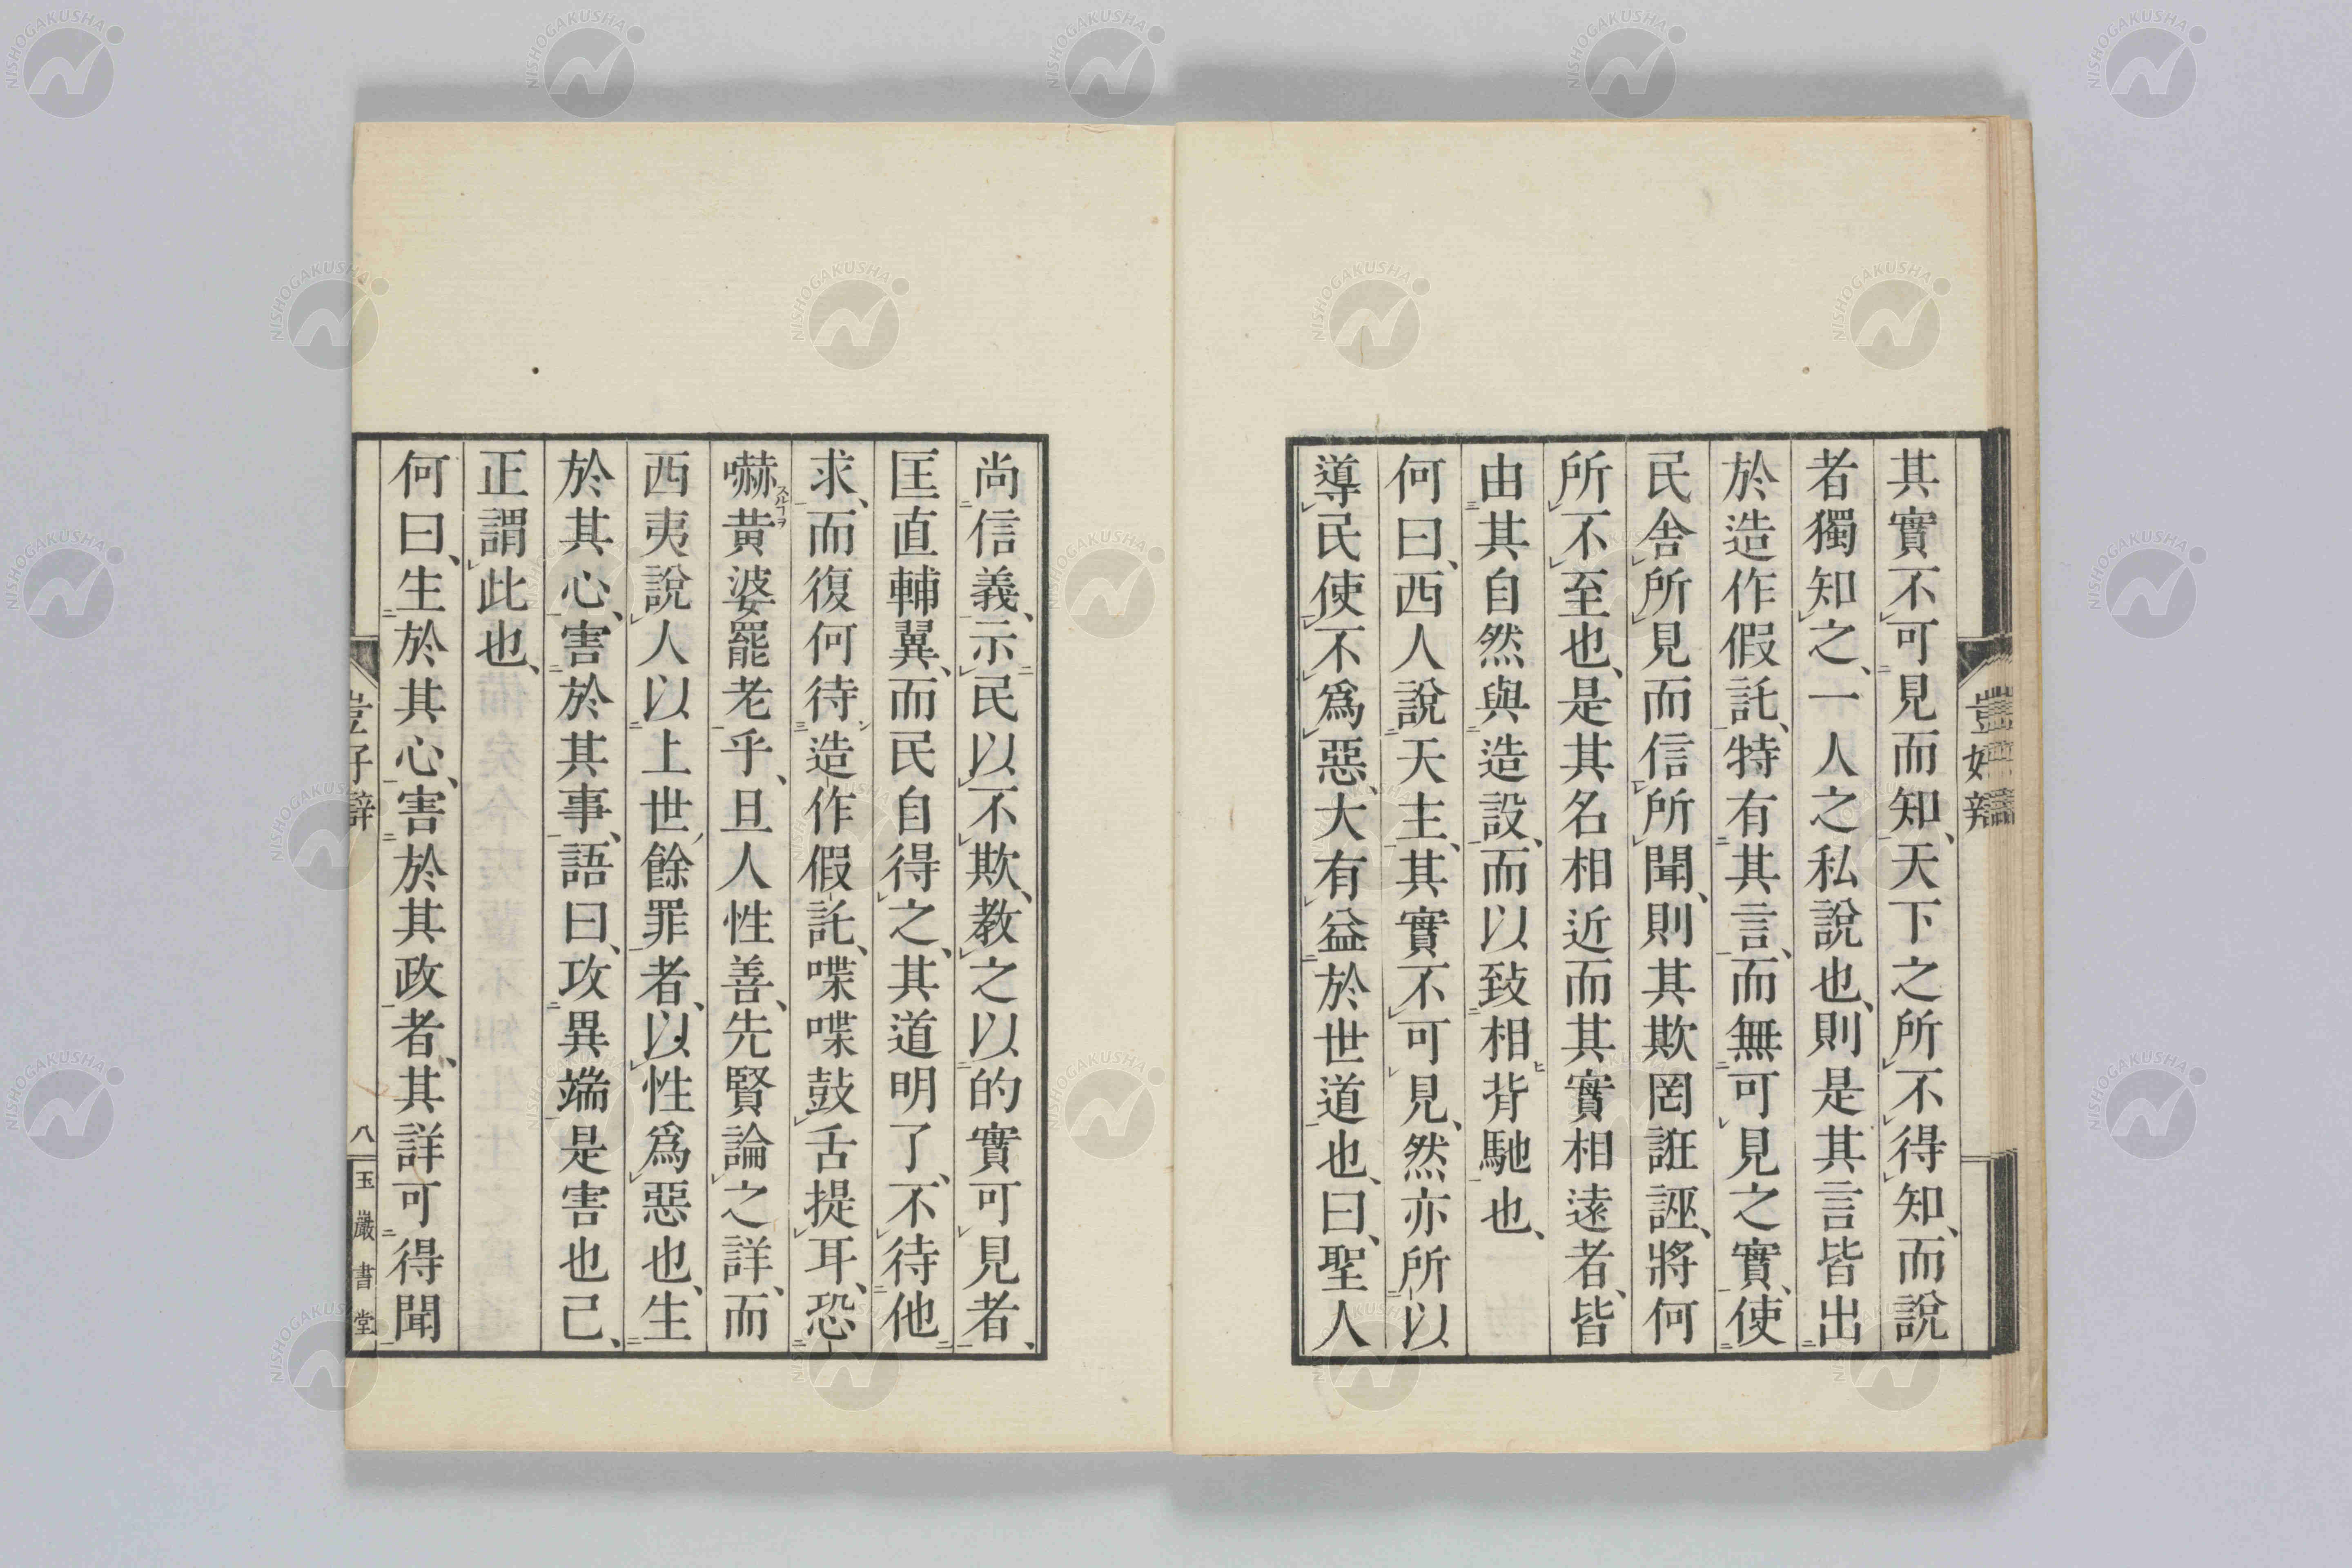 其實不可見而知、天下之所不得知、而說
者獨知之、一人之私說也、則是其言皆出
於造作假託、特有其言、而無可見之實、使
民舍所見而信所聞、則其欺罔誑誣、將何
所不至也、是其名相近而其實相遠者、皆
由其自然與造設、而以致相背馳也、
何曰、西人說天主、其實不可見、然亦所以
導民使不爲惡、大有益於世道也、曰、聖人
尚信義、示民以不欺、教之以的實可見者、
匡直輔翼、而民自得之、其道明了、不待他
求、而復何待造作假託、喋喋鼓舌提耳、恐
嚇黄婆罷老乎、且人性善、先賢論之詳、而
西夷說人以上世餘罪者、以性爲惡也、生
於其心、害於其事、語曰、攻異端是害也己、
正謂此也、
何曰、生於其心、害於其政者、其詳可得聞
八
玉巖書堂
NISHOGAKUSHA